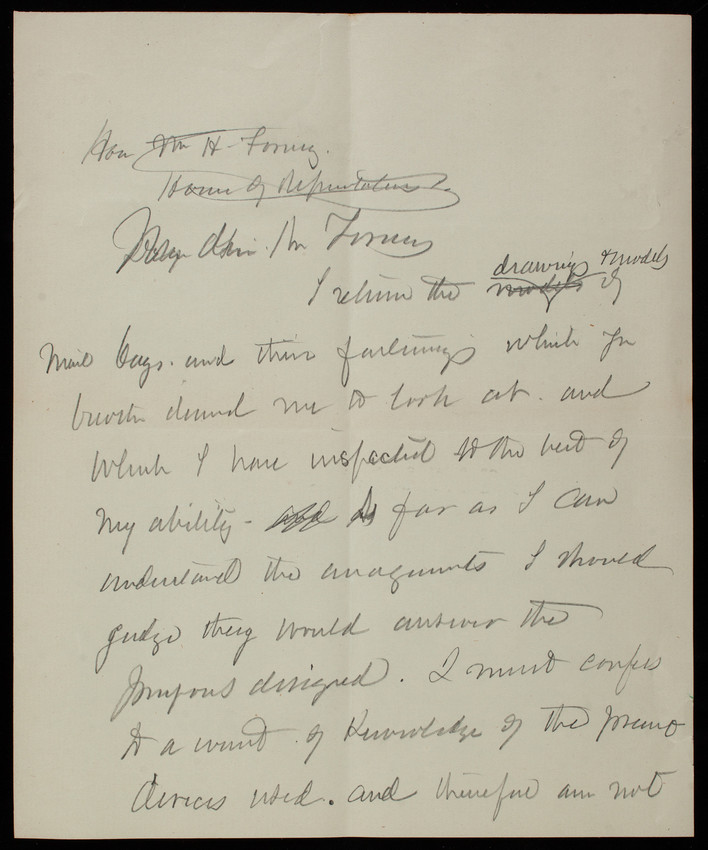 Hon Wm H. Forney.
House of Representatives.
My dear Mr Forney
drawings & models
I return the models of
mail bags. and their fastenings which you
desired me to look at. and
which I have inspected to the best of
my ability - and As far as I can
understand the arrangements I should
judge they would answer the
purpose designed. I must confess
to a want of knowledge of the previous
devices used. and therefore am not